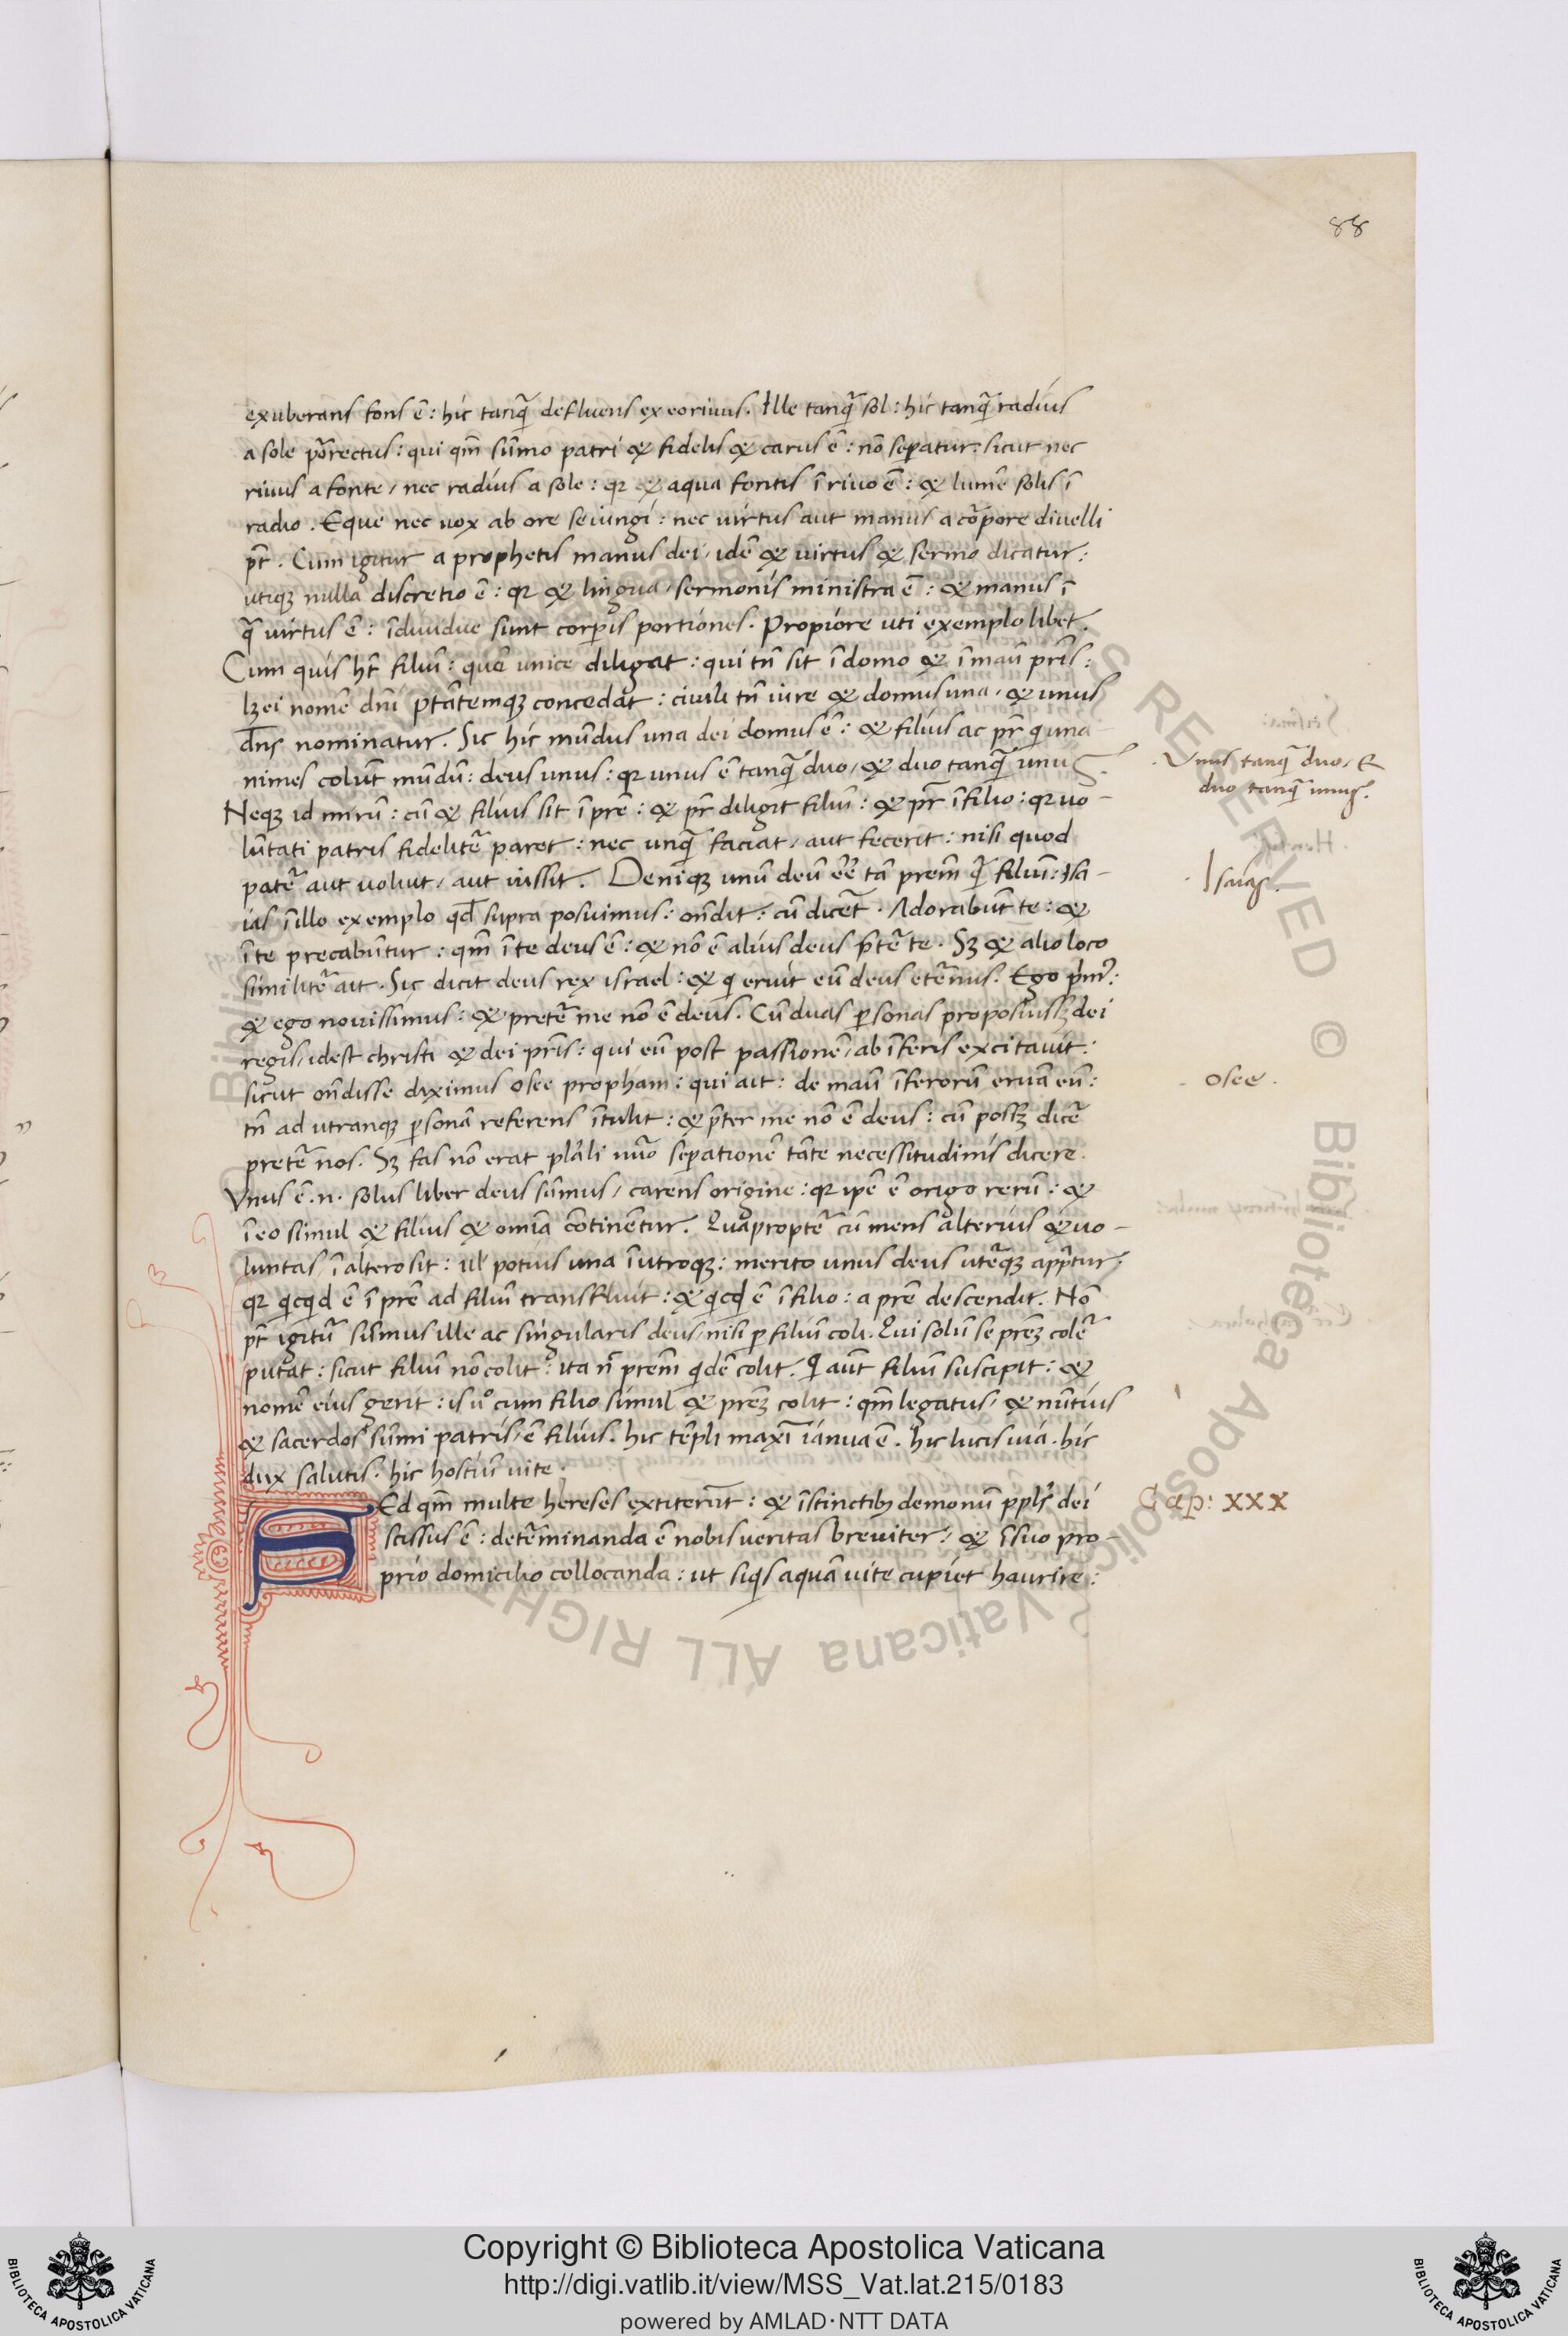 88
exuberans fons ē: hic tanq̄ defluens ex eo riuus. Ille tanq̄ sol: hic tanq̄ radius
a sole porrectus: qui qm̄ sūmo patri & fidelis & carus ē: nō sepatur: sicut nec
riuus a fonte, nec radius a sole: qr & aqua fontis ī riuo ē: & lumē solis ī
radio. Eque nec uox ab ore seiungi: nec uirtus aut manus a corpore diuelli
pt̄. Cum igitur a prophetis manus dei, idē & uirtus & sermo dicatur:
utiqꝫ nulla discretio ē: qr & lingua, sermonis ministra ē: & manus ī
q̄ uirtus ē: īdiuidue sunt corpis portiones. Propiore uti exemplo libet.
Cum quis ht̄ filiū: quē unice diligat: qui tn̄ sit ī domo & ī manū pris̄:
lꝫ ei nomē dn̄i ptātemqꝫ concedat: ciuili tn̄ iure & domus una, & unus
dn̄s nominatur. Sic hic mūdus una dei domus ē: & filius ac pr̄ q una
nimes colūt mūdū: deus unus: qr unus ē tanq̄ duo, & duo tanq̄ unus.
Unus tanq̄ duo, &
duo tanq̄ unus.
Neqꝫ id mirū: cū & filius sit ī prē: & pr̄ diligit filiū: & pr̄ ī filio: qr uo-
lūtati patris fidelitē paret: nec unq̄ faciat, aut fecerit: nisi quod
patē aut uoluit, aut iussit. Deniqꝫ unū deū eē tā prem̄ q̄ filiū: Isa-
Isaias.
ias ī illo exemplo qd̄ supra posuimus: on̄dit: cū dicēt. Adorabūt te: &
ī te precabūtur: qm̄ ī te deus ē: & nō ē alius deus pt̄ē te. Sꝫ & alio loco
similitē ait. Sic dicit deus rex israel: & q eruit eū deus etērnus. Ego prim':
& ego nouissimus: & pretē me nō ē deus. Cū duas psonas proposuissꝫ dei
regis, idest christi & dei pris̄: qui eū post passionē, ab īferis excitauit:
sicut on̄disse diximus osee propham: qui ait: de manū īferorū eruā eū:
osee.
tn̄ ad utranqꝫ psonā referens ītulit: & pr̄ter me nō ē deus: cū possꝫ dicē
pretē nos. Sꝫ fas nō erat plāli nūo sepationē tāte necessitudinis dicere.
Vnus ē.n. solus liber deus sūmus, carens origine: qr ipē ē origo rerū: &
ī eo simul & filius & omīa cōtinētur. Quaproptē cū mens alterius & uo-
luntas, ī altero sit: ul' potius una ī utroqꝫ: merito unus deus utēqꝫ appt̄ur,
qr qcqd ē ī prē ad filiū transfluit: & qcqd ē ī filio: a prē descendit. Nō
pt̄ igitū sūmus ille ac singularis deus, nisi p filiū coli. Qui solū se premꝫ colē
putat: sicut filiū nō colit: ita n̄ prem̄ qdē colit. Q aūt filiū suscipit: &
nomē eius gerit: is u° cum filio simul & premꝫ colit: qm̄ legatus, & nūtius
& sacerdos sūmi patris, ē filius. hic tēpli maxī ianua ē. hic lucis uia. hic
dux salutis. hic hostiū uite.
SEd qm̄ multe hereses extiterūt: & īstinctibꝫ demonū ppls' dei
Cap: xxx
scissus ē: detēminanda ē nobis ueritas breuiter, & ī suo pro-
prio domicilio collocanda: ut siqs aquā uite cupiet haurire:
Copyright © Biblioteca Apostolica Vaticana
http://digi.vatlib.it/view/MSS_Vat.lat.215/0183
powered by AMLAD·NTT DATA